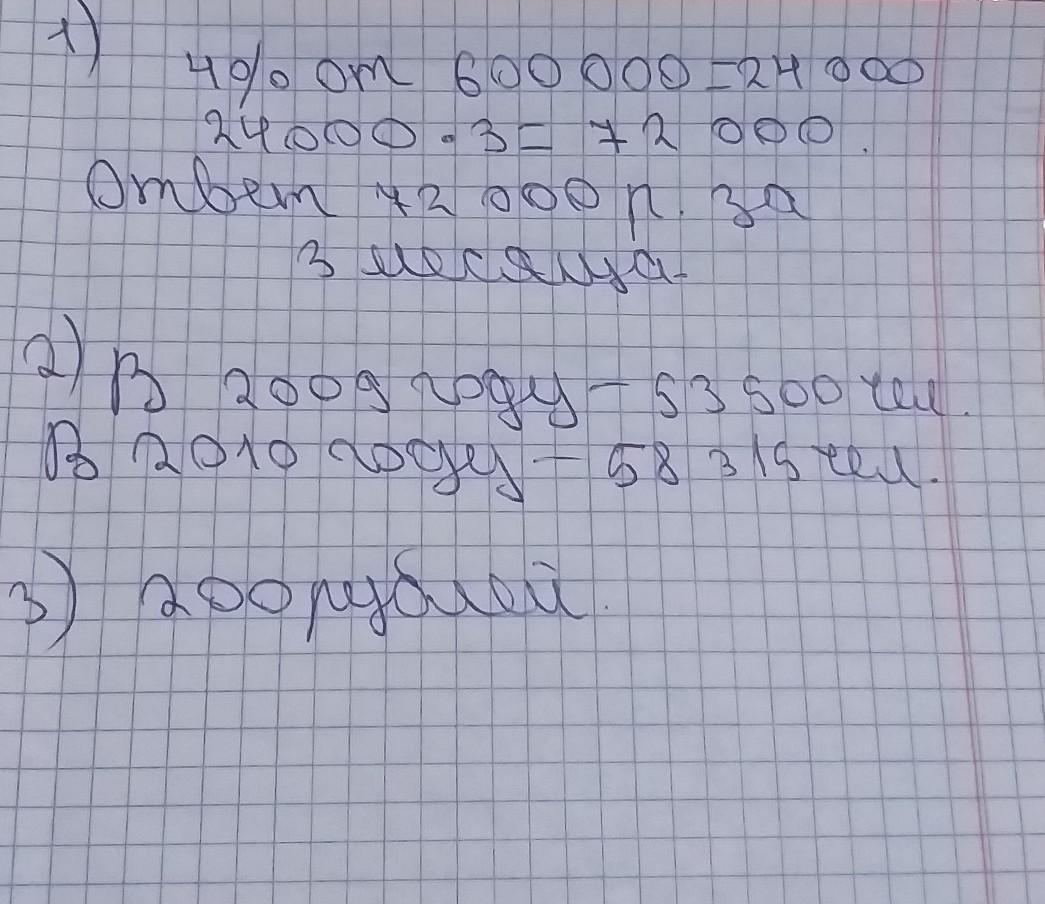 1)
4% от 600 000 = 24 000
24000 · 3 = 72 000.
Ответ 72 000 р. за
3 месяца.
2) В 2009 году - 53 500 чел.
В 2010 году - 58 315 чел.
3) 200 рублей.